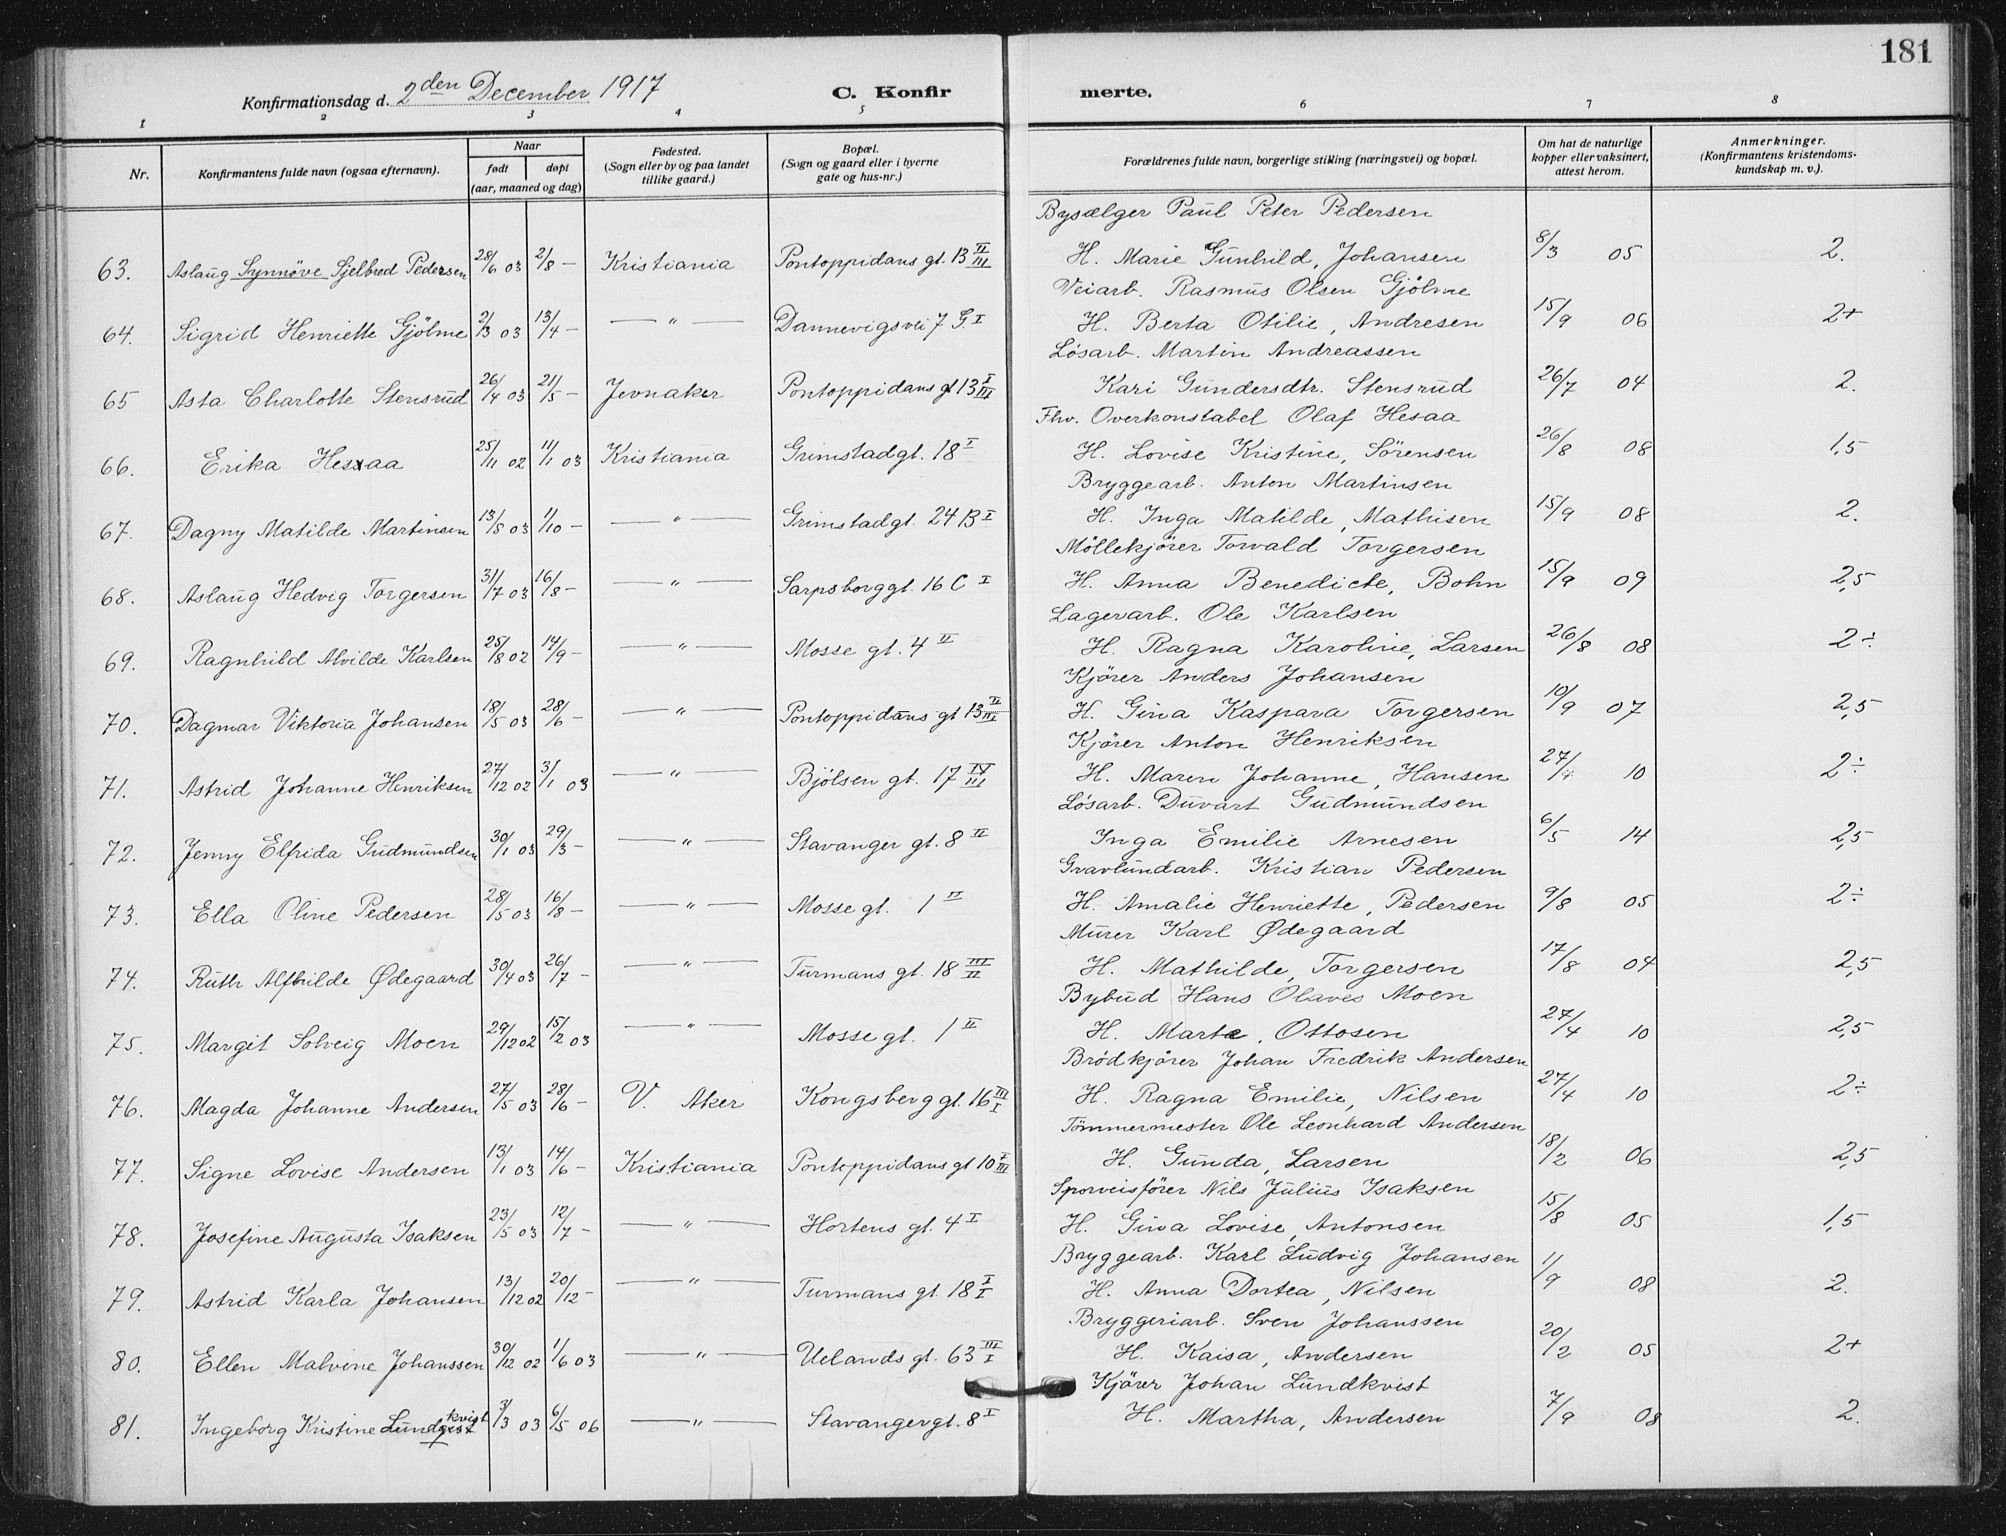 181
Konfirmationsdag d. 2den December 1917
C. Konfirmerte.
1 2 3 4 5 6 7 8
Nr.
Konfirmantens fulde navn (ogsaa efternavn).
Naar
født døpt
(aar, maaned og dag)
Fødested.
(Sogn eller by og paa landet
tillike gaard.)
Bopæl.
(Sogn og gaard eller i byerne
gate og hus-nr.)
Forældrenes fulde navn, borgerlige stilling (næringsvei) og bopæl.
Om hat de naturlige
kopper eller vaksinert,
attest herom.
Anmerkninger.
(Konfirmantens kristendoms-
kundskap m. v.).
Bysælger Paul Peter Pedersen
63. Aslaug Synnöve Sjelbred Pedersen 28/6 03 2/8 – Kristiania Pontoppidans gt. 13 II/III H. Marie Gunhild, Johansen 8/3 05 2.
Veiarb. Rasmus Olsen Gjölme
64. Sigrid Henriette Gjölme 2/3 03 13/4 – — " — Dannevigsvei 7 G. I H. Berta Otilie, Andresen 15/9 06 2+
Løsarb. Martin Andreassen
65 Asta Charlotte Stensrud 26/4 03 21/5 – Jevnaker Pontoppidans gt 13 I/III Kari Gundersdtr. Stensrud 26/7 04 2.
Fhv. Overkonstabel Olaf Hesaa
66. Erika Hesaa 25/11 02 11/1 03 Kristiania Grimstadgt. 18 I H. Lovise Kristine, Sörensen 26/8 08 1,5
Bryggearb. Anton Martinsen
67. Dagny Matilde Martinsen 13/5 03 1/10 – — " — Grimstadgt. 24 B I H. Inga Matilde, Mathisen 15/9 08 2.
Möllekjörer Torvald Torgersen
68. Aslaug Hedvig Torgersen 31/7 03 16/8 – — " — Sarpsborggt. 16 C I H. Anna Benedicte, Bohn 15/9 09 2,5
Lagerarb. Ole Karlsen
69. Ragnhild Alvilde Karlsen 25/8 02 14/9 – — " — Mosse gt. 4 II H. Ragna Karoline, Larsen 26/8 08 2÷
Kjörer Anders Johansen
70. Dagmar Viktoria Johansen 18/5 03 28/6 – — " — Pontoppidans gt 13 II/III H. Gina Kaspara Torgersen 10/9 07 2,5
Kjörer Anton Henriksen
71. Astrid Johanne Henriksen 27/12 02 31/1 03 — " — Bjölsen gt. 17 IV/III H. Maren Johanne, Hansen 27/4 10 2÷
Løsarb. Duvart Gudmundsen
72. Jenny Elfrida Gudmundsen 30/1 03 29/3 – — " — Stavanger gt. 8 II Inga Emilie Arnesen 6/5 14 2,5
Gravlundarb. Kristian Pedersen
73. Ella Oline Pedersen 28/5 03 16/8 – — " — Mosse gt. 1 II H. Amalie Henriette, Pedersen 9/8 05 2÷
Murer Karl Ødegaard
74. Ruth Alfhilde Ødegaard 30/4 03 26/7 – — " — Turmans gt. 18 III/II H. Mathilde, Torgersen 17/8 04 2,5
Bybud Hans Olaves Moen
75. Margit Solveig Moen 29/12 02 15/2 03 — " — Mosse gt. 1 II H. Marte, Ottosen 27/4 10 2,5
Brödkjörer Johan Fredrik Andersen
76. Magda Johanne Andersen 27/5 03 28/6 – V. Aker Kongsberg gt. 16 III/I H. Ragna Emilie, Nilsen 27/4 10 2÷
Tömmermester Ole Leonhard Andersen
77. Signe Lovise Andersen 13/1 03 14/6 – Kristiania Pontoppidans gt 10 I/III H. Gunda, Larsen 18/2 06 2,5
Sporveisförer Nils Julius Isaksen
78. Josefine Augusta Isaksen 23/5 03 12/7 – — " — Hortens gt. 4 I H. Gina Lovise, Antonsen 15/8 05 1,5
Bryggearb. Karl Ludvig Johansen
79. Astrid Karla Johansen 13/12 02 20/12 – — " — Turmans gt. 18 I/I H. Anna Dortea, Nilsen 1/9 08 2.
Bryggeriarb. Sven Johanssen
80. Ellen Malvine Johanssen 30/12 02 1/6 03 — " — Uelands gt. 63 III/I H. Kaisa, Andersen 20/2 05 2+
Kjörer Johan Lundkvist
81. Ingeborg Kristine Lundkvist 3/3 03 6/5 06 — " — Stavangergt. 8 I H. Martha, Andersen 7/9 08 2.